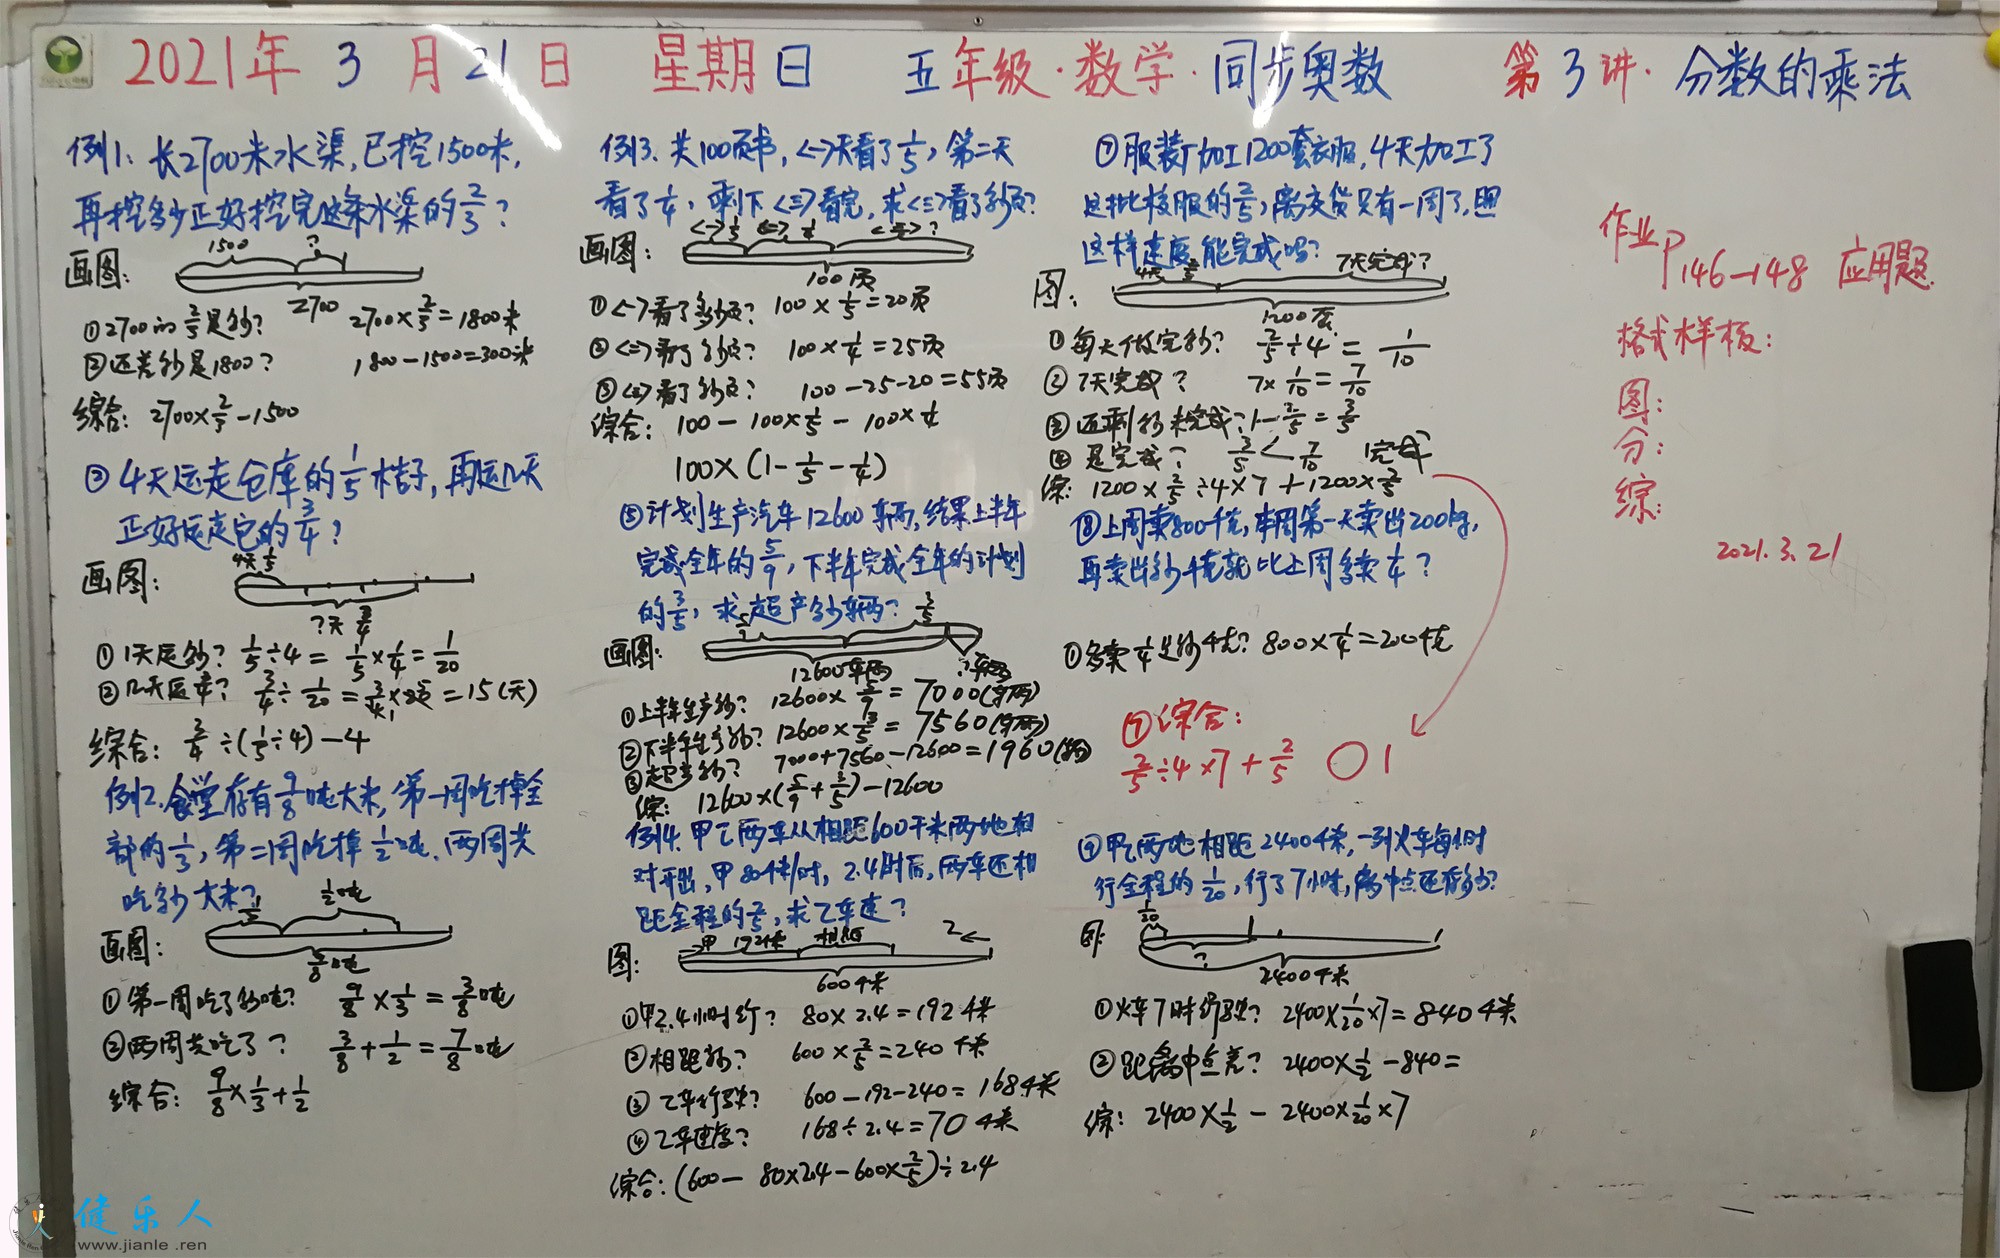 2021年 3 月 21 日 星期日 五年级·数学·同步奥数 第3讲·分数的乘法
例1. 长2700米水渠,已挖1500米,
再挖多少正好挖完这条水渠的2/3?
画图: 1500 ?
2700
①2700的2/3是多少? 2700×2/3=1800米
②还差多少是1800? 1800-1500=300米
综合: 2700×2/3-1500
② 4天运走仓库的1/5桔子,再运几天
正好运走它的3/4?
画图: 4天 1/5
?天 3/4
①1天运多少? 1/5÷4= 1/5×1/4=1/20
②几天运3/4? 3/4÷1/20= =15(天)
综合: 3/4÷(1/5÷4)-4
例2. 食堂存有9/8吨大米,第一周吃掉全
部的1/3,第二周吃掉1/2吨.两周共
吃多少大米?
画图: 1/3 1/2吨
9/8吨
①第一周吃了多少吨? 9/8×1/3=3/8吨
②两周共吃了? 3/8+1/2=7/8吨
综合: 9/8×1/3+1/2
例3. 共100页书,<一>天看了1/5,第二天
看了1/4,剩下<三>看完,求<三>看了多少页?
画图: <一>1/5 <二>1/4 <三>?
100页
①<一>看了多少页? 100×1/5=20页
②<二>看了多少页? 100×1/4=25页
③<三>看了多少页? 100-25-20=55页
综合: 100-100×1/5-100×1/4
100×(1-1/5-1/4)
⑤计划生产汽车12600车辆,结果上半年
完成全年的5/9,下半年完成全年的计划
的3/5,求超产多少车辆?
画图: 5/9 3/5
12600车辆 ?车辆
①上半年生产多少? 12600×5/9=7000(车辆)
②下半年生产多少? 12600×3/5=7560(车辆)
③超产多少? 7000+7560-12600=1960(辆)
综: 12600×(5/9+3/5)-12600
例4. 甲乙两车从相距600千米两地相
对开出,甲80千米/时,2.4时后,两车还相
距全程的2/5,求乙车速?
图: 甲 192千米 相距 乙
600千米
①甲2.4小时行? 80×2.4=192千米
②相距多少? 600×2/5=240千米
③乙车行多少? 600-192-240=168千米
④乙车速度? 168÷2.4=70千米
综合: (600-80×2.4-600×2/5)÷2.4
⑦服装厂加工1200套衣服,4天加工了
这批校服的2/5,离交货只有一周了,照
这样速度能完成吗?
图: 4天 2/5 7天完成?
1200套
①每天做完多少? 2/5÷4=1/10
②7天完成? 7×1/10=7/10
③还剩多少未完成? 1-2/5=3/5
④是完成? 3/5<7/10 完成
综: 1200×2/5÷4×7+1200×2/5
⑧上周卖800千克,本周第一天卖出200kg,
再卖出多少千克就比上周多卖1/4?
①多卖1/4是多少千克? 800×1/4=200千克
⑦综合:
2/5÷4×7+2/5 ○ 1
④甲乙两地相距2400千米,一列火车每小时
行全程的1/20,行了7小时,离中点还有多少?
图: 1/20
?
2400千米
①火车7时行多少? 2400×1/20×7=840千米
②距离中点差? 2400×1/2-840=
综: 2400×1/2-2400×1/20×7
作业P146-148 应用题.
格式样板:
图:
分:
综:
2021.3.21
健乐人
www.jianle.ren